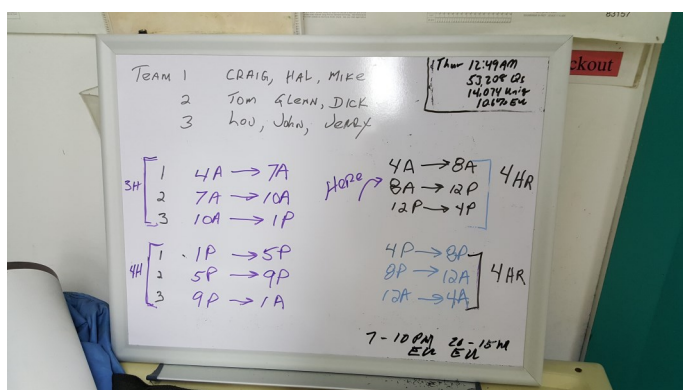 83157
ckout
TEAM 1 CRAIG, HAL, MIKE
2 TOM GLENN, DICK
3 LOU, John, JERRY
Thur 12:49AM
53,208 Qs
14,074 Units
10.6% EU
3H
1 4A → 7A
2 7A → 10A
3 10A → 1P
4H
1 1P → 5P
2 5P → 9P
3 9P → 1A
HERE
4A → 8A
8A → 12P
12P → 4P
4HR
4P → 8P
8P → 12A
12A → 4A
4HR
7-10PM
EU EU